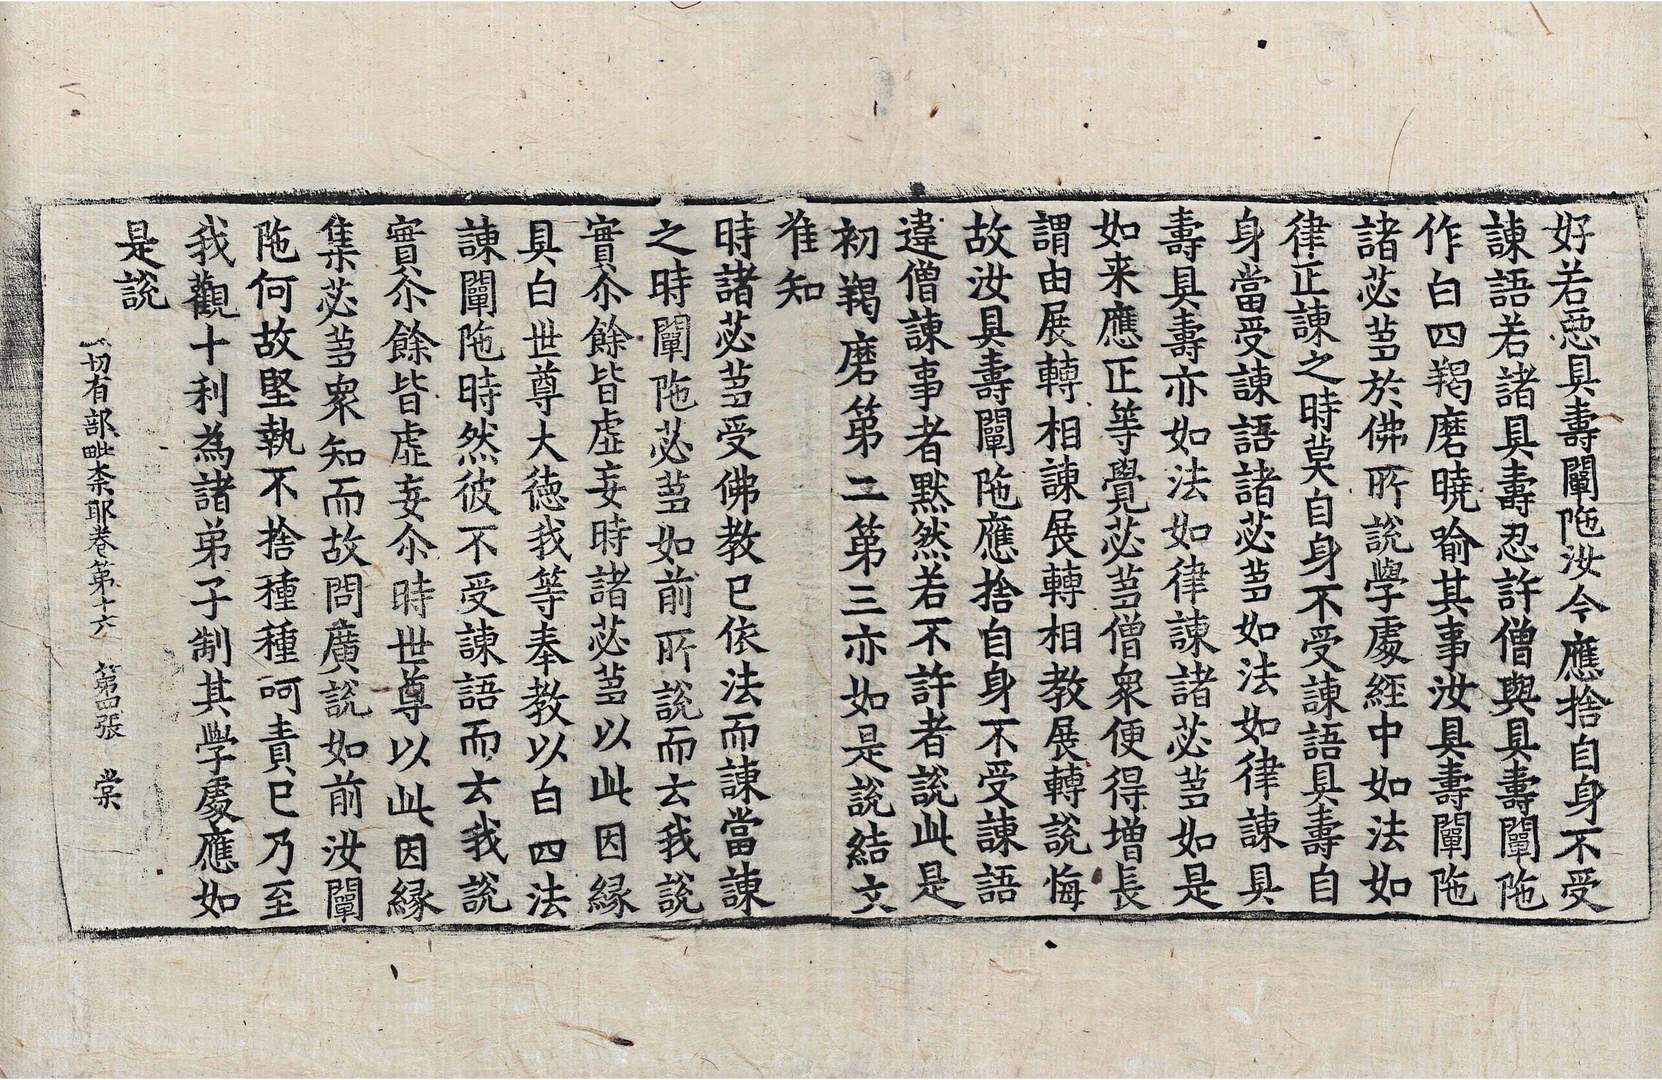 好若惡具壽闡陁汝今應捨自身不受
諫語若諸具壽忍許僧與具壽闡陁
作白四羯磨曉喻其事汝具壽闡陁
諸苾芻於佛所說學處經中如法如
律正諫之時莫自身不受諫語具壽自
身當受諫語諸苾芻如法如律諫具
壽具壽亦如法如律諫諸苾芻如是
如来應正等覺苾芻僧衆便得增長
謂由展轉相諫展轉相教展轉說悔
故汝具壽闡陁應捨自身不受諫語
違僧諫事者黙然若不許者說此是
初羯磨第二第三亦如是說結文
准知
時諸苾芻受佛教已依法而諫當諫
之時闡陁苾芻如前所說而云我說
實尒餘皆虛妄時諸苾芻以此因緣
具白世尊大德我等奉教以白四法
諫闡陁時然彼不受諫語而云我說
實尒餘皆虛妄尒時世尊以此因緣
集苾芻衆知而故問廣說如前汝闡
陁何故堅執不捨種種呵責已乃至
我觀十利為諸弟子制其學處應如
是說
一切有部毗柰耶卷第十六 第四張 棠